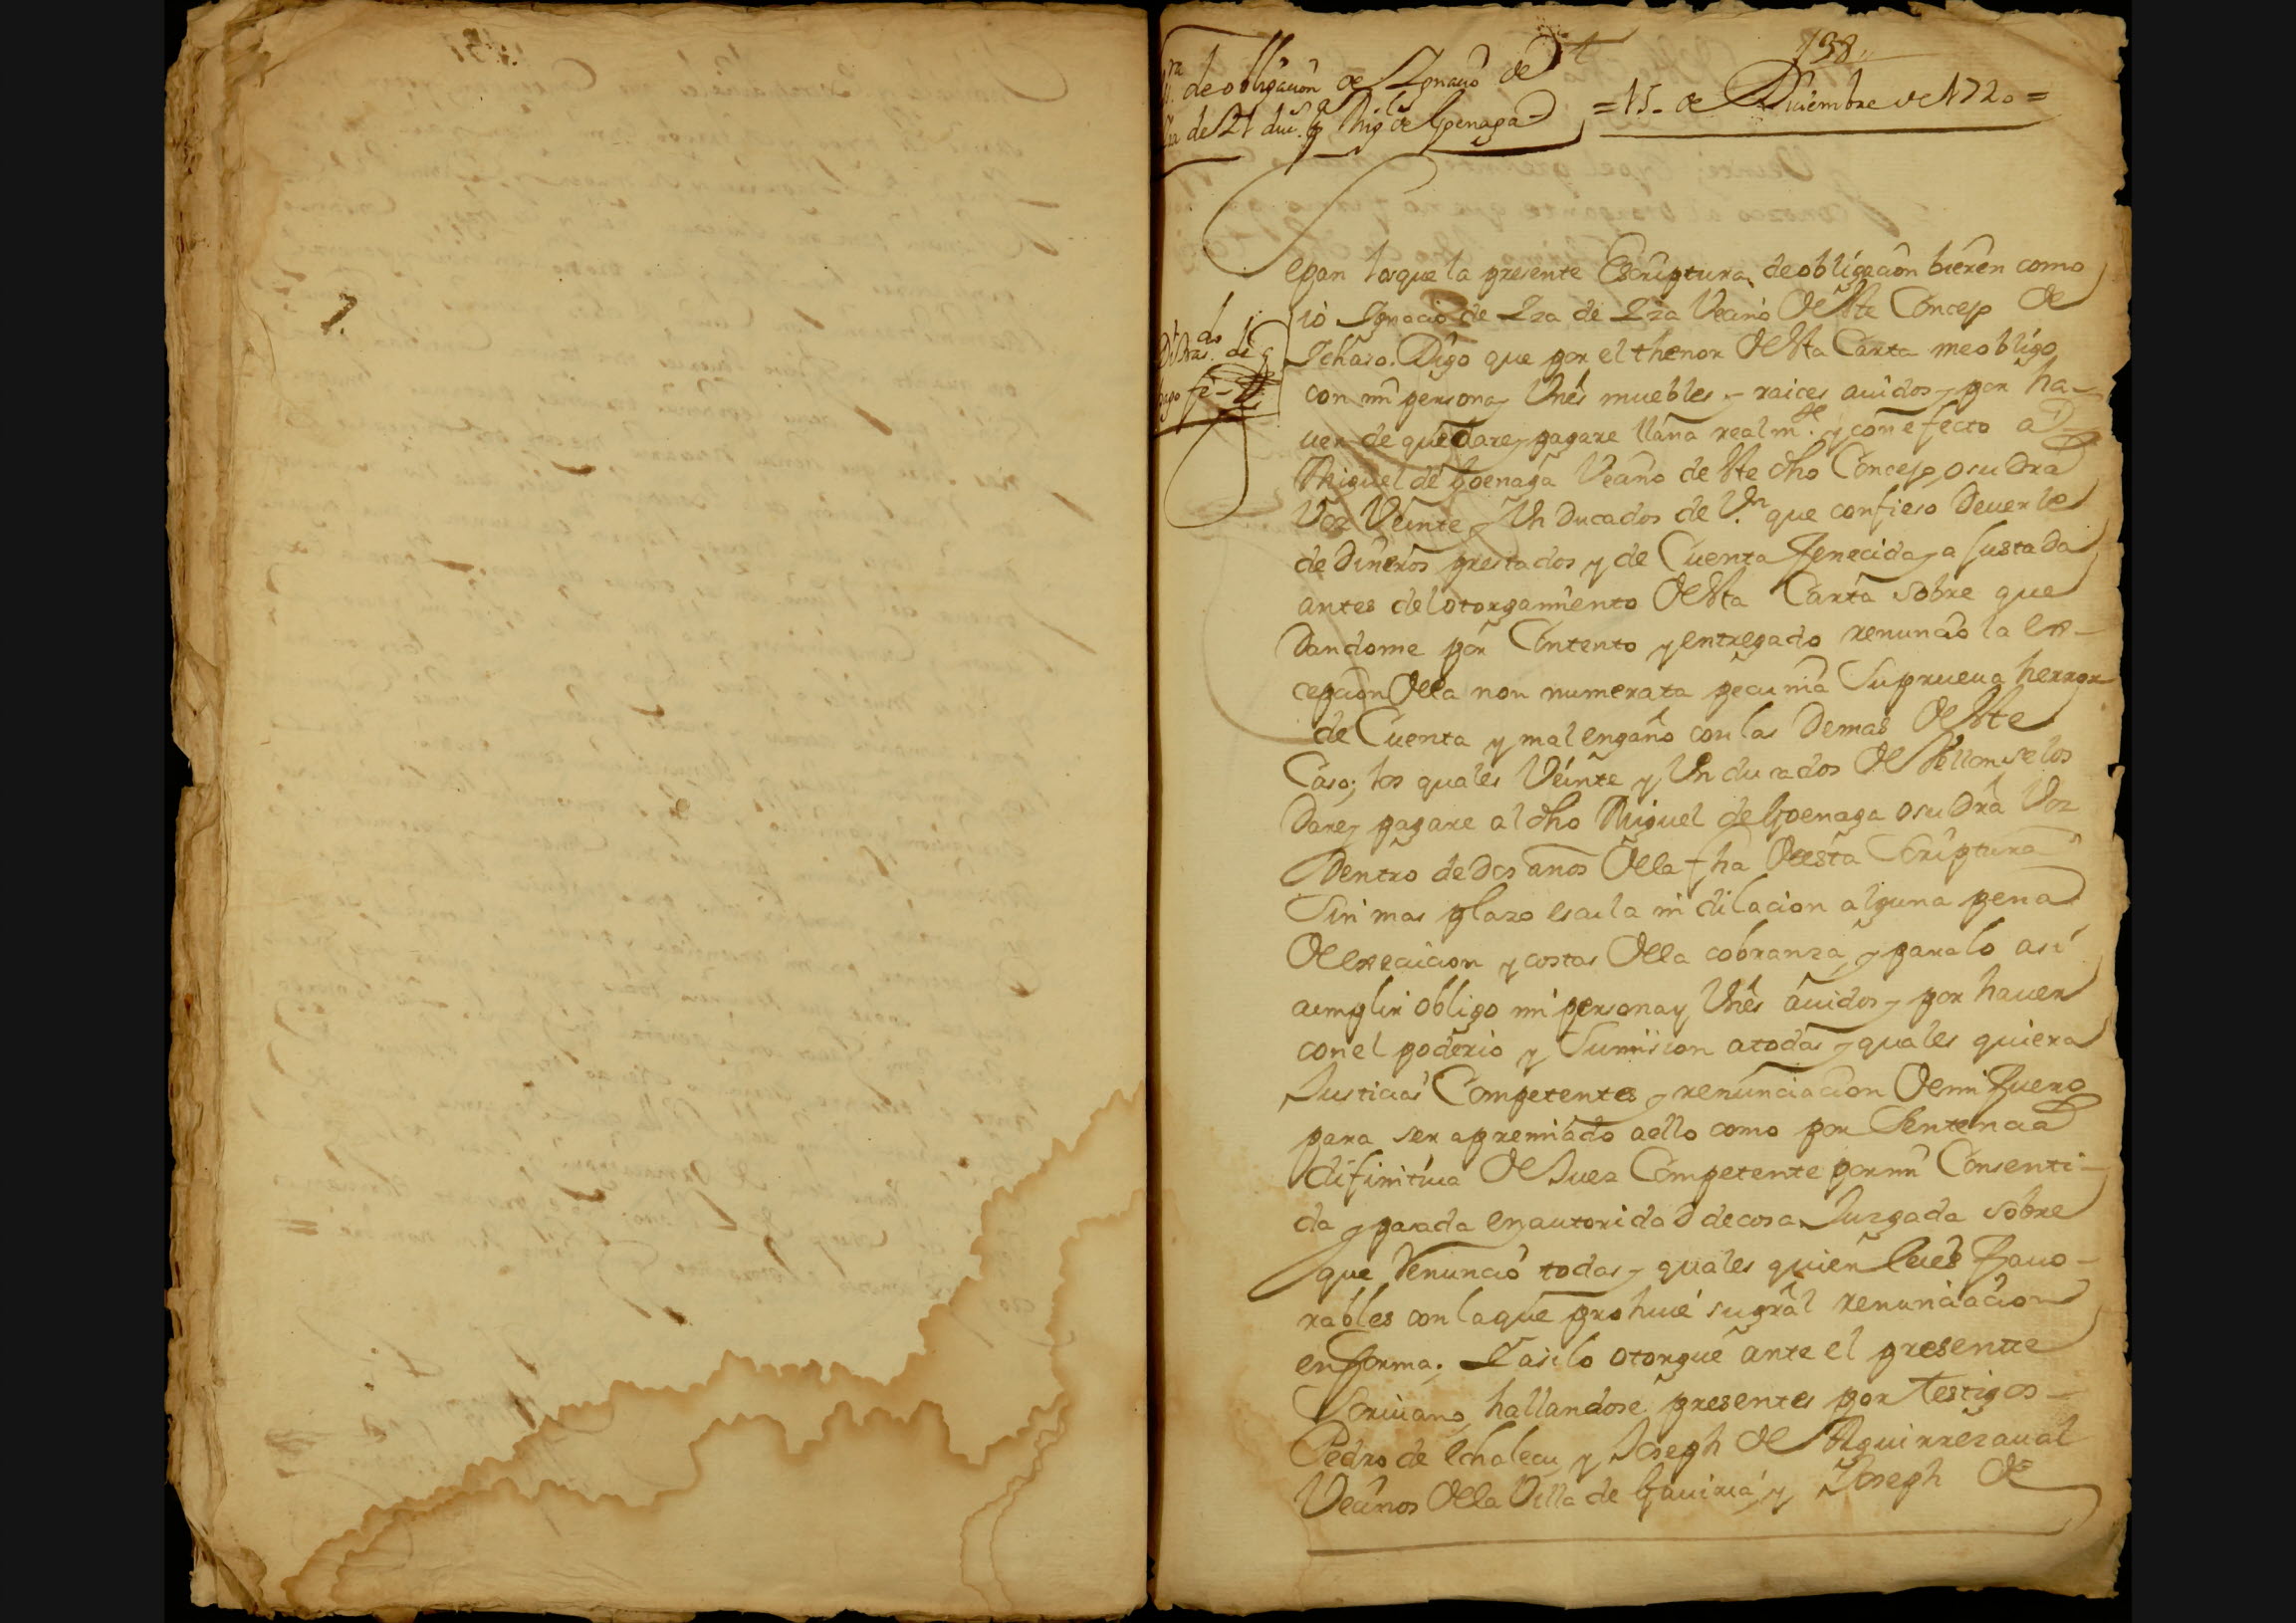 138
de obligaçion de Ignaçio de
de 21 duc.s a Mig.l de Goenaga
=15- de Diciembre de 1720=
Sepan los que la presente Escriptura de obligaçion bieren como
io Ignaçio de Iza de Iza Veçino De este Concejo De
Ichaso. Digo que por el thenor De esta Carta me obligo
con mi persona y Vnes muebles y raices auidos y por ha-
uer de que dare y pagare llana realm.te y con efecto a
Miguel de Goenaga Veçino de este dho Concejo, o su dra
Voz Veinte y Vn Ducados de V.n que confieso Deuerle
de Dineros prestados y de Cuenta Fenecida y a Justada
antes del otorgamiento De esta Carta sobre que
Dandome por Contento y entregado renunçio la ex-
cepçion Della non numerata pecunia Su prueua herror
de Cuenta y mal engaño con las Demas De este
Caso; los quales Veinte y Vn ducados De Vellon se los
Dare y pagare al dho Miguel de Goenaga o su Dra Voz
Dentro de Dos años Della fha De esta Scriptura
Sin mas plazo escusa ni dilacion alguna pena
De execuçion y costas Della cobranza, y para lo asi
cumplir obligo mi persona y Vnes auidos y por hauer
con el poderio y Sumision a todas y quales quiera
Justiçias Competentes y renunçiaçion De mi Fuero
para ser apremiado a ello como por Sentençia
difinitiua De Juez Competente por mi Consenti-
da y pasada en autoridad de cosa Juzgada sobre
que Renunçio todas y quales quier leies Fauo-
rables con la que prohiue su gral renunçiaçion
en forma. I asi lo otorgue ante el presente
Scriuano, hallandose presentes por testigos-
Pedro de Echalecu y Joseph De Aguirrezaual
Veçinos Della Villa de Gauiria y Joseph De